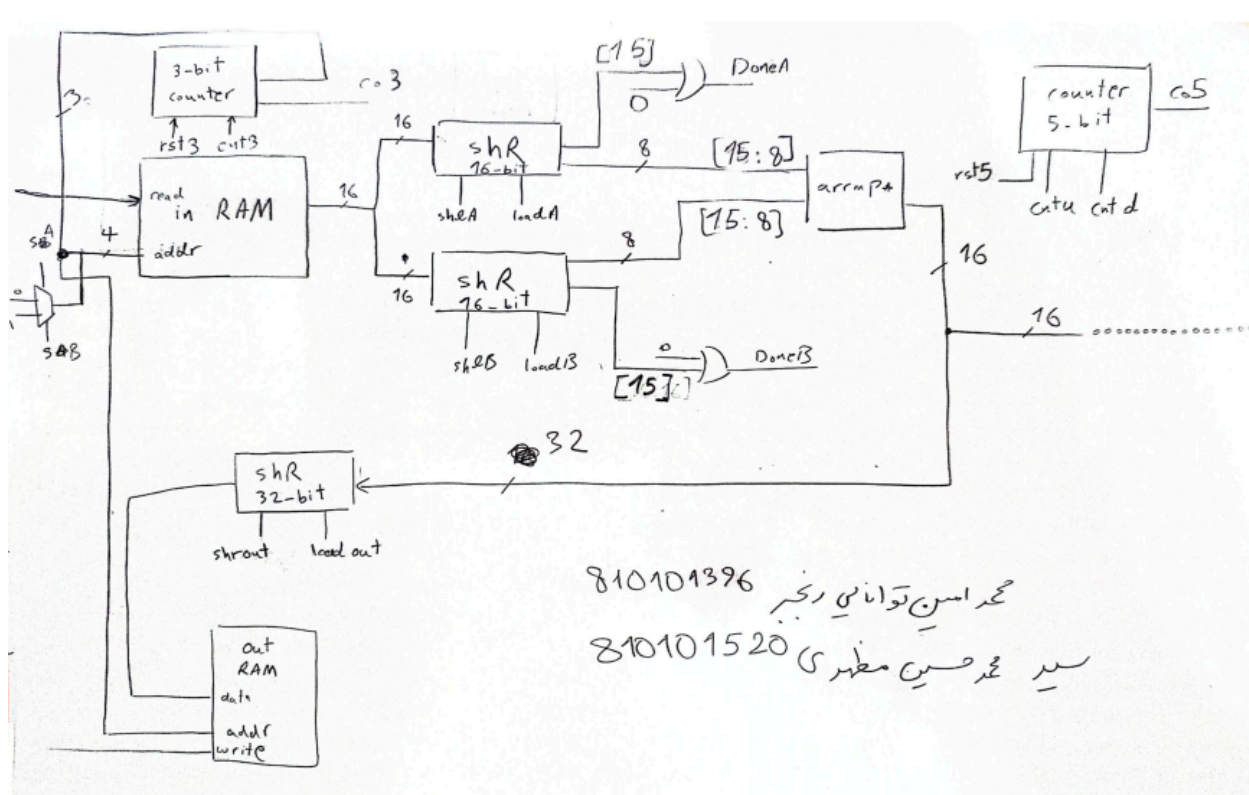 3-bit
counter
co3
rst3 cnt3
3
read
in RAM
addr
4
16
16
shR
16-bit
shlA loadA
[15]
0
DoneA
8
[15:8]
16
shR
16-bit
shlB loadB
8
[15:8]
0
[15]
DoneB
counter
5-bit
co5
rst5
cntu cntd
16
16
32
shR
32-bit
shrout load out
out
RAM
data
addr
write
810101396 محمد امین توانایی رنجبر
810101520 سید محمد حسین مظهری